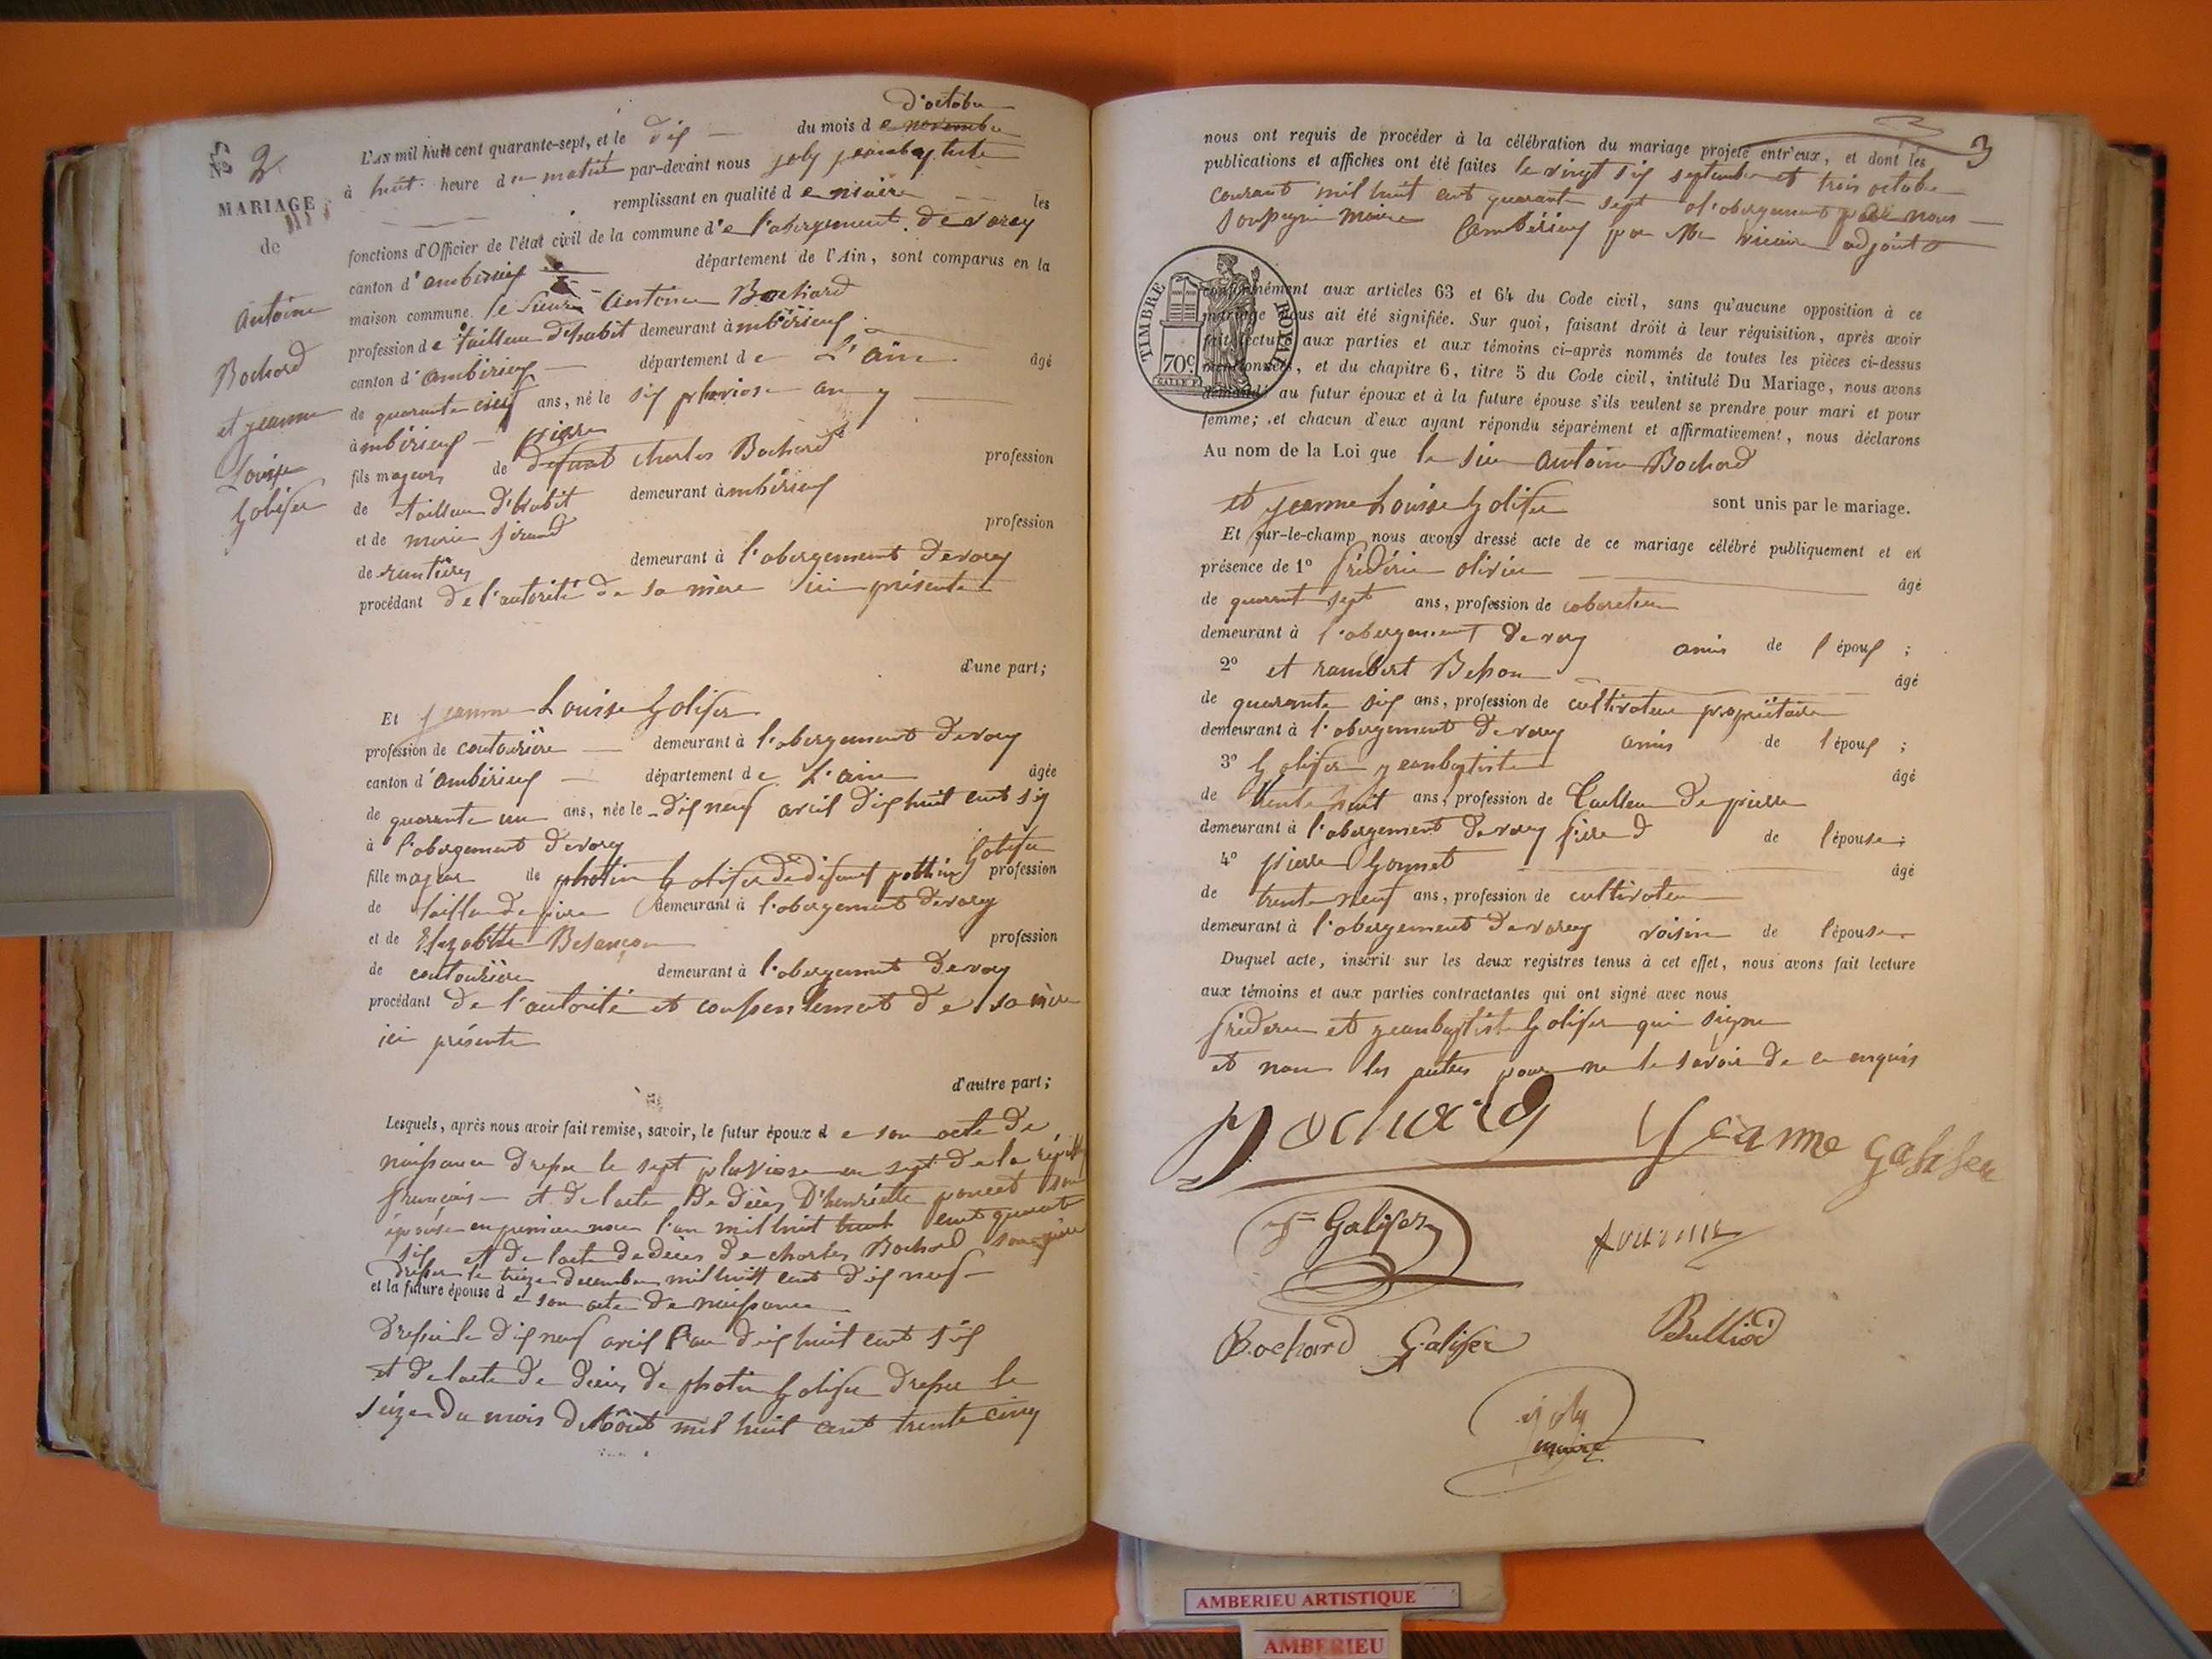 No 2
MARIAGE
de
Antoine
Bochard
et jeanne
Louise
Golifer
d'octobre
L'AN mil huit cent quarante-sept, et le dix du mois de novembre
à huit heure du matin par-devant nous joly jeanbaptiste
remplissant en qualité de maire les
fonctions d'Officier de l'état civil de la commune de l'abergement de varey
canton d'ambérieux département de l'Ain, sont comparus en la
maison commune le sieur Antoine Bochard
profession de tailleur d'habit demeurant à ambérieux
canton d'ambérieux département de L'ain âgé
de quarante ans, né le six pluviose an 7
à ambérieux
fils majeur de defunt charles Bochard profession
de tailleur d'habit demeurant à ambérieux
et de marie sirand profession
de rentière demeurant à l'abergement de varey
procédant de l'autorité de sa mère ici présente
d'une part;
Et jeanne Louise Golifer
profession de couturière demeurant à l'abergement de varey
canton d'ambérieux département de L'ain âgée
de quarante un ans, née le dix neuf avril dix huit cent six
à l'abergement de varey
fille majeur de photin Golifer profession
de tailleur de pierre demeurant à l'abergement de varey
et de Elizabeth Besançon profession
de couturière demeurant à l'abergement de varey
procédant de l'autorité et consentement de sa mère
ici présente
d'autre part;
Lesquels, après nous avoir fait remise, savoir, le futur époux de son acte de
naissance dressé le sept pluviose an sept de la
française et de l'acte de décès D'henriette poncet son
épouse en première noce l'an mil huit cent quarante
six et de l'acte de décès de charles Bochard son père
dressé le treize décembre mil huit cent dix neuf
et la future épouse de son acte de naissance
dressé le dix neuf avril l'an dix huit cent six
et de l'acte de décès de photin Golifer dressé le
seize du mois d'Août mil huit cent trente cinq
3
nous ont requis de procéder à la célébration du mariage projeté entr'eux, et dont les
publications et affiches ont été faites le vingt six septembre et trois octobre
courant mil huit cent quarante sept à l'abergement par nous
soussigné maire adjoint
conformément aux articles 63 et 64 du Code civil, sans qu'aucune opposition à ce
mariage nous ait été signifiée. Sur quoi, faisant droit à leur réquisition, après avoir
fait lecture aux parties et aux témoins ci-après nommés de toutes les pièces ci-dessus
mentionnées, et du chapitre 6, titre 5 du Code civil, intitulé Du Mariage, nous avons
demandé au futur époux et à la future épouse s'ils veulent se prendre pour mari et pour
femme; et chacun d'eux ayant répondu séparément et affirmativement, nous déclarons
TIMBRE ROYAL
70c
Au nom de la Loi que le sieur Antoine Bochard
et jeanne Louise Golifer sont unis par le mariage.
Et sur-le-champ nous avons dressé acte de ce mariage célébré publiquement et en
présence de 1° frédéric olivier âgé
de quarante sept ans, profession de cabareteur
demeurant à l'abergement de varey amis de l'époux ;
2° et rambert Besson âgé
de quarante six ans, profession de cultivateur propriétaire
demeurant à l'abergement de varey amis de l'époux ;
3° Golifer jeanbaptiste âgé
de trente huit ans, profession de tailleur de pierre
demeurant à l'abergement de varey frère de l'épouse ;
4° pierre Gonnet âgé
de trente neuf ans, profession de cultivateur
demeurant à l'abergement de varey voisin de l'épouse
Duquel acte, inscrit sur les deux registres tenus à cet effet, nous avons fait lecture
aux témoins et aux parties contractantes qui ont signé avec nous
frédéric et jeanbaptiste Golifer qui signe
et non les autres pour ne le savoir de ce enquis
Bochard Jeanne
Galifer
Bochard Galifer Bulliod
joly
maire
AMBERIEU ARTISTIQUE
AMBERIEU